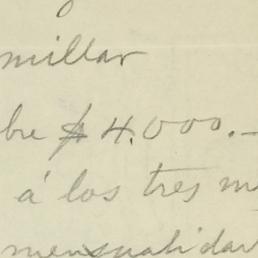 millar
bre $ 4.000.—
á los tres m
mensualidad